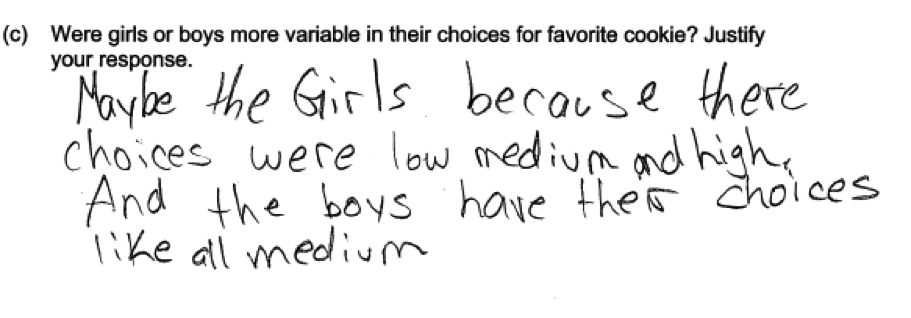 (c) Were girls or boys more variable in their choices for favorite cookie? Justify
your response.
Maybe the Girls because there
choices were low medium and high,
And the boys have ther choices
like all medium